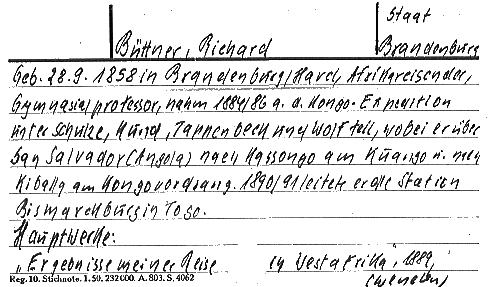 Staat
Büttner, Richard
Brandenburg
Geb. 28.9.1858 in Brandenburg/Havel, Afrikareisender,
Gymnasialprofessor, nahm 1884/86 a. d. Kongo-Expedition
unter Schulze, Kund, Tappenbeck und Wolf teil, wobei er über
San Salvador (Angola) nach Kassongo am Kuango u. nach
Kiballa am Kongo vordrang. 1890/91 leitete er die Station
Bismarckburg in Togo.
Hauptwerke:
"Ergebnisse meiner Reise in Westafrika", 1889,
Reg. 10. Stichnote. 1. 50. 232000. A. 803. S. 4062